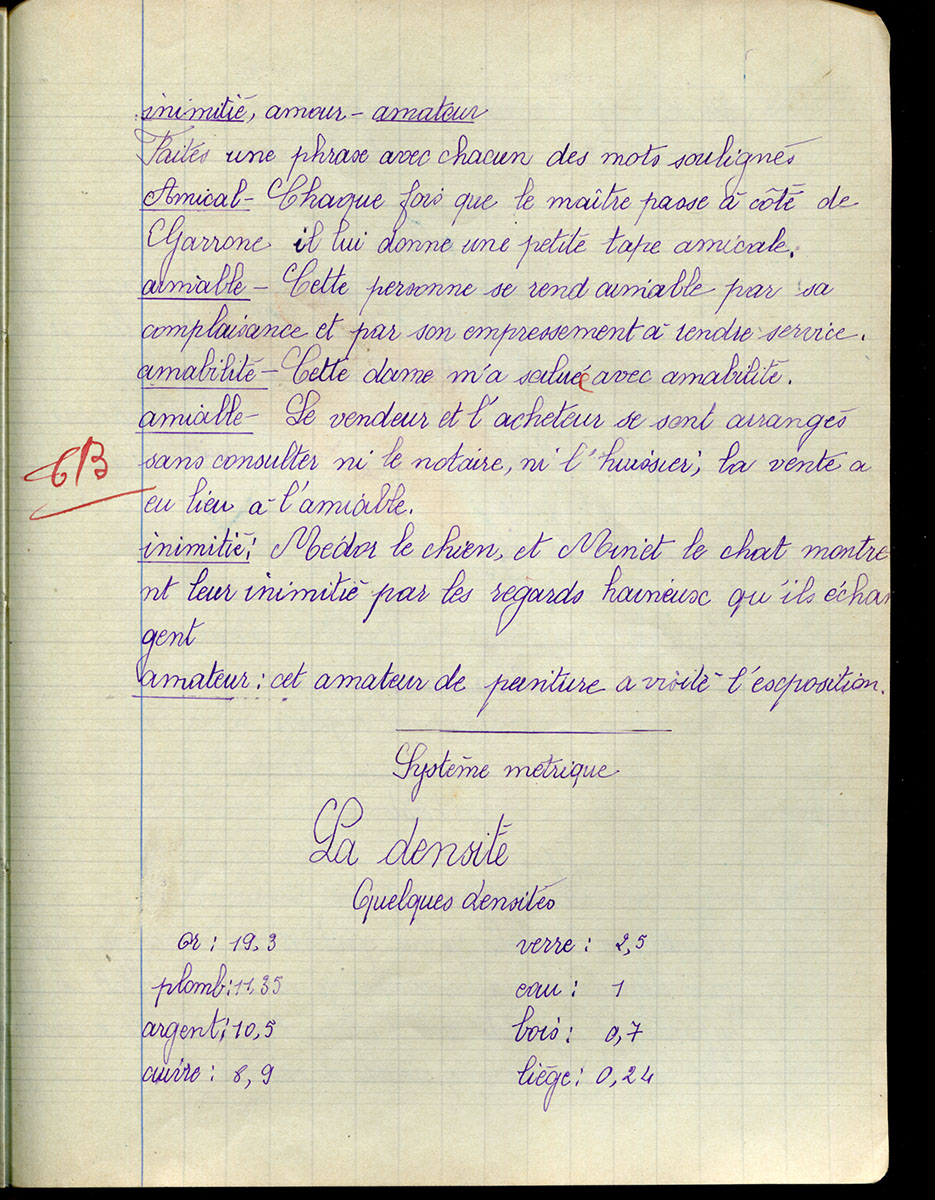 inimitié, amour - amateur
Faites une phrase avec chacun des mots soulignés
Amical - Chaque fois que le maître passe à côté de
Garrone il lui donne une petite tape amicale.
aimable - Cette personne se rend aimable par sa
complaisance et par son empressement à rendre service.
amabilité - Cette dame m'a salué avec amabilité.
amiable - Le vendeur et l'acheteur se sont arrangés
TB
sans consulter ni le notaire, ni l'huissier; la vente a
eu lieu à l'amiable.
inimitié: Médor le chien, et Minet le chat montre
nt leur inimitié par les regards haineux qu'ils échan
gent
amateur: cet amateur de peinture a visité l'exposition.
Système métrique
La densité
Quelques densités
or: 19,3 verre: 2,5
plomb: 11,35 eau: 1
argent: 10,5 bois: 0,7
cuivre: 8,9 liège: 0,24